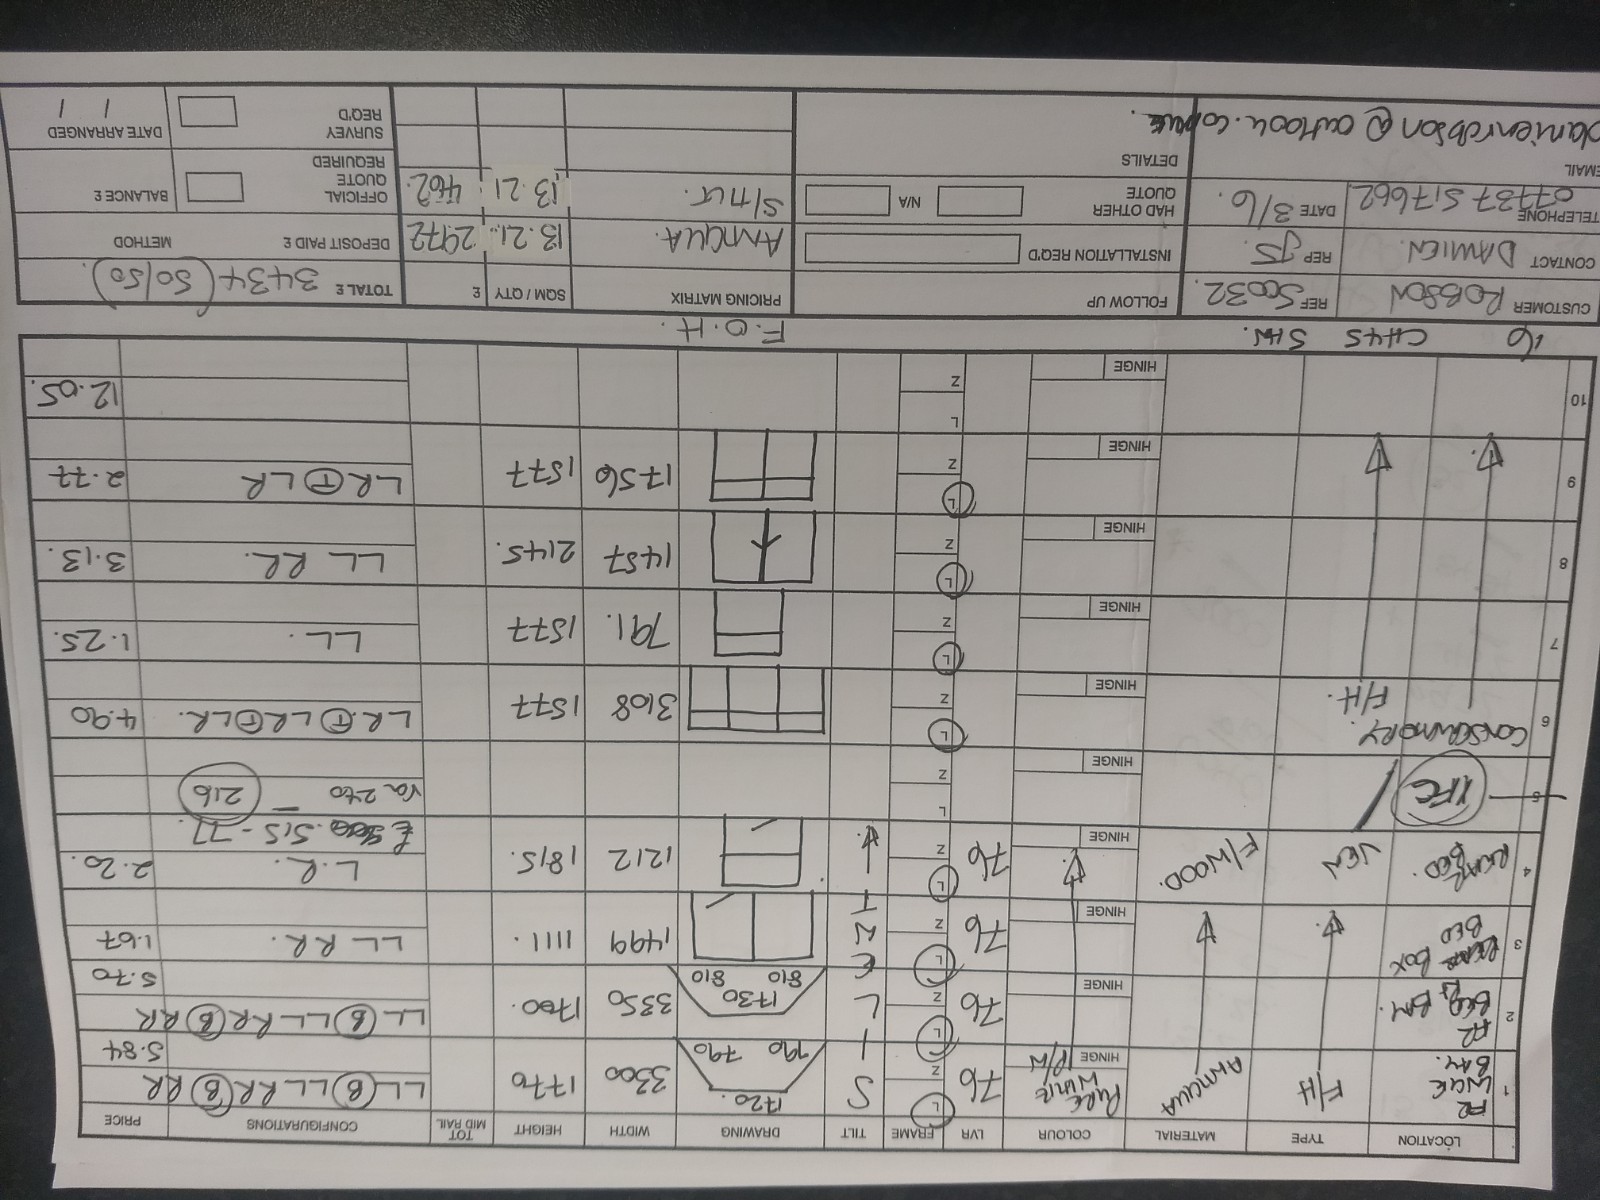 LOCATION TYPE MATERIAL COLOUR LVR FRAME TILT DRAWING WIDTH HEIGHT TOT MID RAIL CONFIGURATIONS PRICE
1 BAY. F/H PURE WHITE HINGE P/W 76 L Z S 1720. 790 790 3300 1770 LL (B) LL RR (B) RR 5.84
2 BED BAY. HINGE 76 L Z I L 1730 810 810 3350 1700. LL (B) LL RR (B) RR 5.70
3 BOX BED HINGE 76 L Z E N T 1499 1111. LL RR. 1.67
4 REAR BED. VEN F/WOOD. HINGE 76 L Z 1212 1815. L.R. 2.20.
£ 515 - 77.
5 HINGE L Z 216
6 CONSERVATORY. F/H. HINGE L Z 3108 1577 LR (T) LR (T) LR. 4.90
7 HINGE L Z 791. 1577 LL. 1.25.
8 HINGE L Z 1457 2145. LL RR. 3.13.
9 HINGE L Z 1756 1577 LR (T) LR 2.77
10 HINGE L Z 12.05.
16 CH45 5HW. F.O.H.
CUSTOMER ROBSON REF 50032. FOLLOW UP PRICING MATRIX SQM / QTY £ TOTAL £ 3434 (50/50).
CONTACT DAMIEN. REP JS. INSTALLATION REQ'D 13.21. 2972 DEPOSIT PAID £ METHOD
TELEPHONE 07737 517662 DATE 3/6. HAD OTHER QUOTE N/A S/TILT. 13.21 462. OFFICIAL QUOTE REQUIRED BALANCE £
EMAIL DETAILS SURVEY REQ'D DATE ARRANGED / /